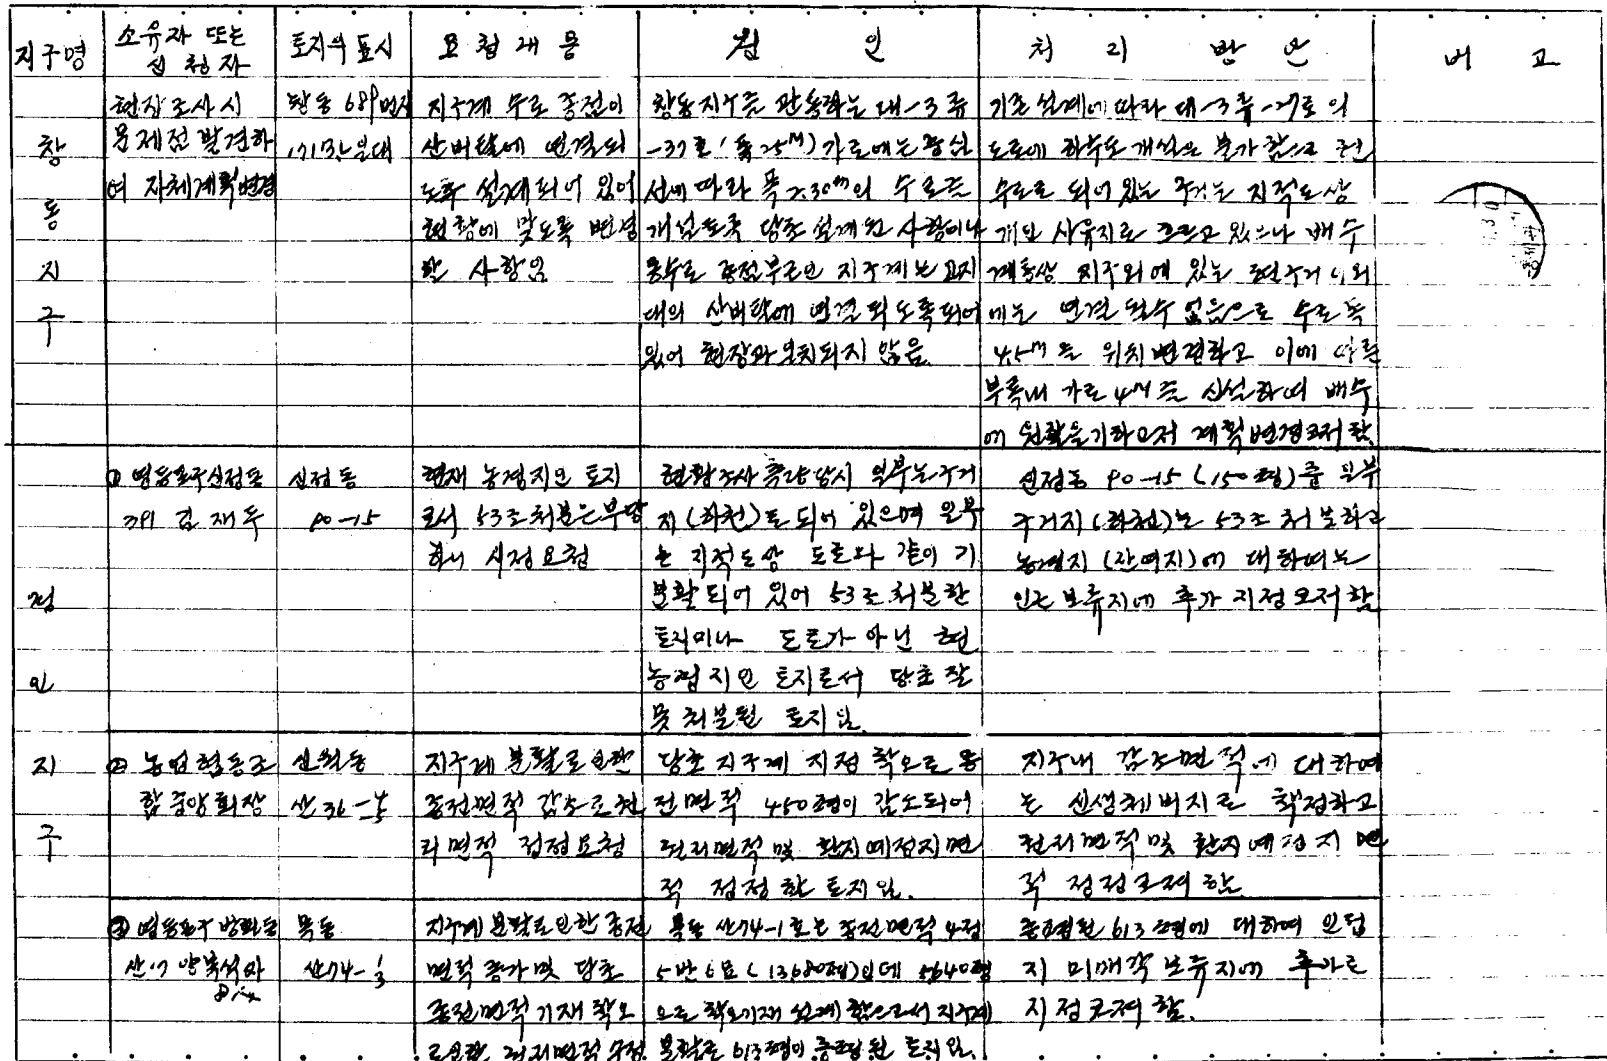 지구명 소유자 또는 신청자 토지의 표시 요청내용 원인 처리방안 비고
창동지구
현장조사시
문제점 발견하
여 자체계획변경
창동 689번지
지구계 수로 종점이
산비탈에 연결되
도록 설계되어 있어
현황에 맞도록 변경
할 사항임
창동지구를 관통하는 대-3류
-37호 (폭 25M) 가로에는
따라 폭 2.30m의 수로를
개설토록 당초 설계된 사항이나
동수로 종점부근인 지구계는 고지
대의 산비탈에 연결되도록되어
있어 현장과 일치되지 않음.
기초설계에 따라 대-3류-37호의
도로에 하수도 개설은 불가함으로 현
수로로 되어 있는 구거는 지적도상
개인 사유지로 흐르고 있으나 배수
계통상 지구외에 있는 현구거 이외
에는 연결 될수 없음으로 수로 폭
4.5M를 위치변경하고 이에 따른
부록내 가로 4M를 신설하여 배수
에 원활을 기하고저 계획변경코저 함.
신정인지구
① 영등포구 신정동
391 김재두
신정동
90-15
현재 농경지인 토지
로서 53조처분은 부당
하니 시정요청
현황조사 측량당시 일부는 구거
지(하천)로 되어 있으며 일부
는 지적도상 도로와 같이 기
분할되어 있어 53조처분한
토지이나 도로가 아닌 현
농경지인 토지로서 당초 잘
못 처분된 토지임.
신정동 90-15 (150평)중 일부
구거지(하천)는 53조 처분하고
농경지(잔여지)에 대하여는
인근 보류지에 추가 지정코저 함
② 농업협동조
합중앙회장
신월동
산 36-
지구계 분할로 인한
종전면적 감소로 권
리면적 정정요청
당초 지구계 지정 착오로 종
전면적 450평이 감소되어
권리면적 및 환지예정지면
적 정정할 토지임.
지구내 감소면적에 대하여
는 신생체비지로 책정하고
권리면적 및 환지예정지 면
적 정정코저 함.
③ 영등포구 방화동
산17
목동
산74-1/3
지구계 분할로 인한 종전
면적 증가 및 당초
종전면적 기재착오
로 인한 권리면적 수정
목동 산74-1호는 종전면적 4정
5반 6묘 (13680평)인데 5640평
으로 착오기재 설계함으로서 지구계
분할로 613평이 증평된 토지임.
증평된 613평에 대하여 인접
지 미매각 보류지에 추가로
지정코저 함.